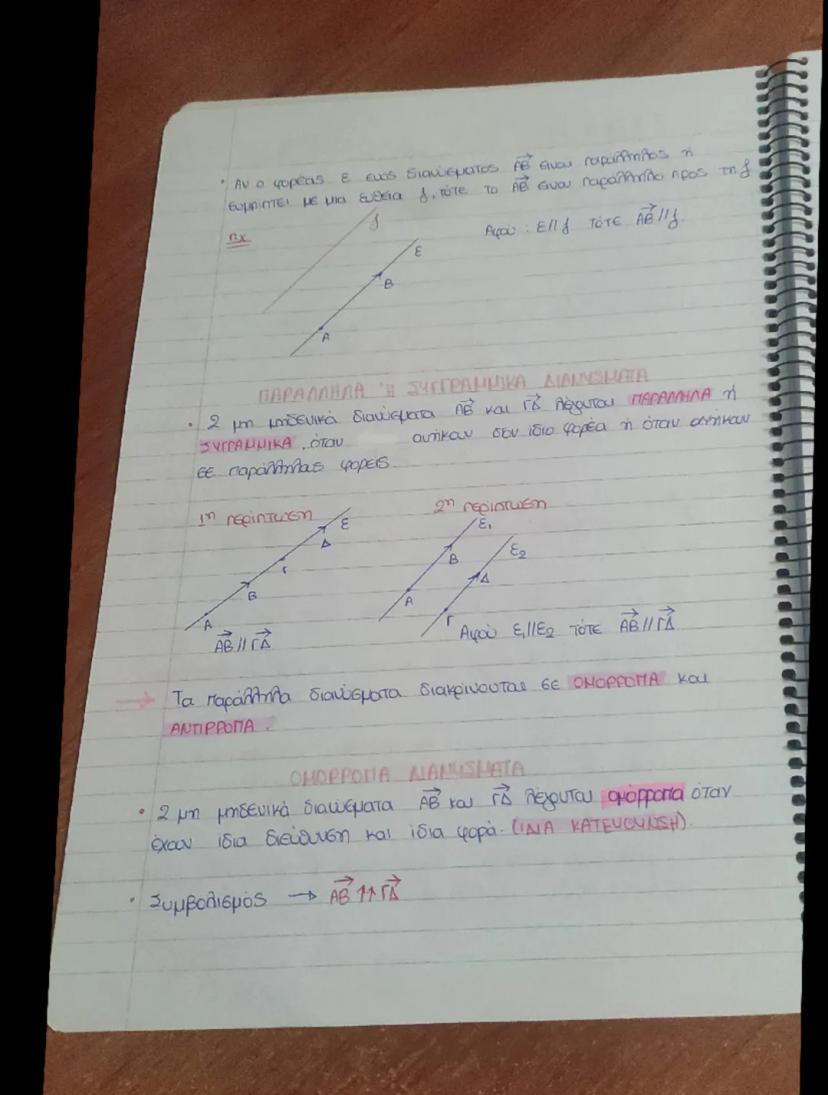 • Αν ο φορέας ε ενός διανύσματος AB⃗ είναι παράλληλος ή
συμπίπτει με μια ευθεία ζ, τότε το AB⃗ είναι παράλληλο προς τη ζ
πχ
ζ
Αφού : ε//ζ τότε AB⃗//ζ.
ε
B
A
ΠΑΡΑΛΛΗΛΑ Ή ΣΥΓΓΡΑΜΜΙΚΑ ΔΙΑΝΥΣΜΑΤΑ
• 2 μη μηδενικά διανύσματα AB⃗ και ΓΔ⃗ λέγονται ΠΑΡΑΛΛΗΛΑ ή
ΣΥΓΓΡΑΜΜΙΚΑ, όταν ανήκουν στον ίδιο φορέα ή όταν ανήκουν
σε παράλληλους φορείς.
1η περίπτωση
ε
Δ
Γ
B
A
AB⃗//ΓΔ⃗
2η περίπτωση
ε₁
ε₂
B
Δ
A
Γ
Αφού ε₁//ε₂ τότε AB⃗//ΓΔ⃗
→ Τα παράλληλα διανύσματα διακρίνονται σε ΟΜΟΡΡΟΠΑ και
ΑΝΤΙΡΡΟΠΑ.
ΟΜΟΡΡΟΠΑ ΔΙΑΝΥΣΜΑΤΑ
• 2 μη μηδενικά διανύσματα AB⃗ και ΓΔ⃗ λέγονται ομόρροπα όταν
έχουν ίδια διεύθυνση και ίδια φορά. (ΙΔΙΑ ΚΑΤΕΥΘΥΝΣΗ).
• Συμβολισμός → AB⃗ ↑↑ ΓΔ⃗